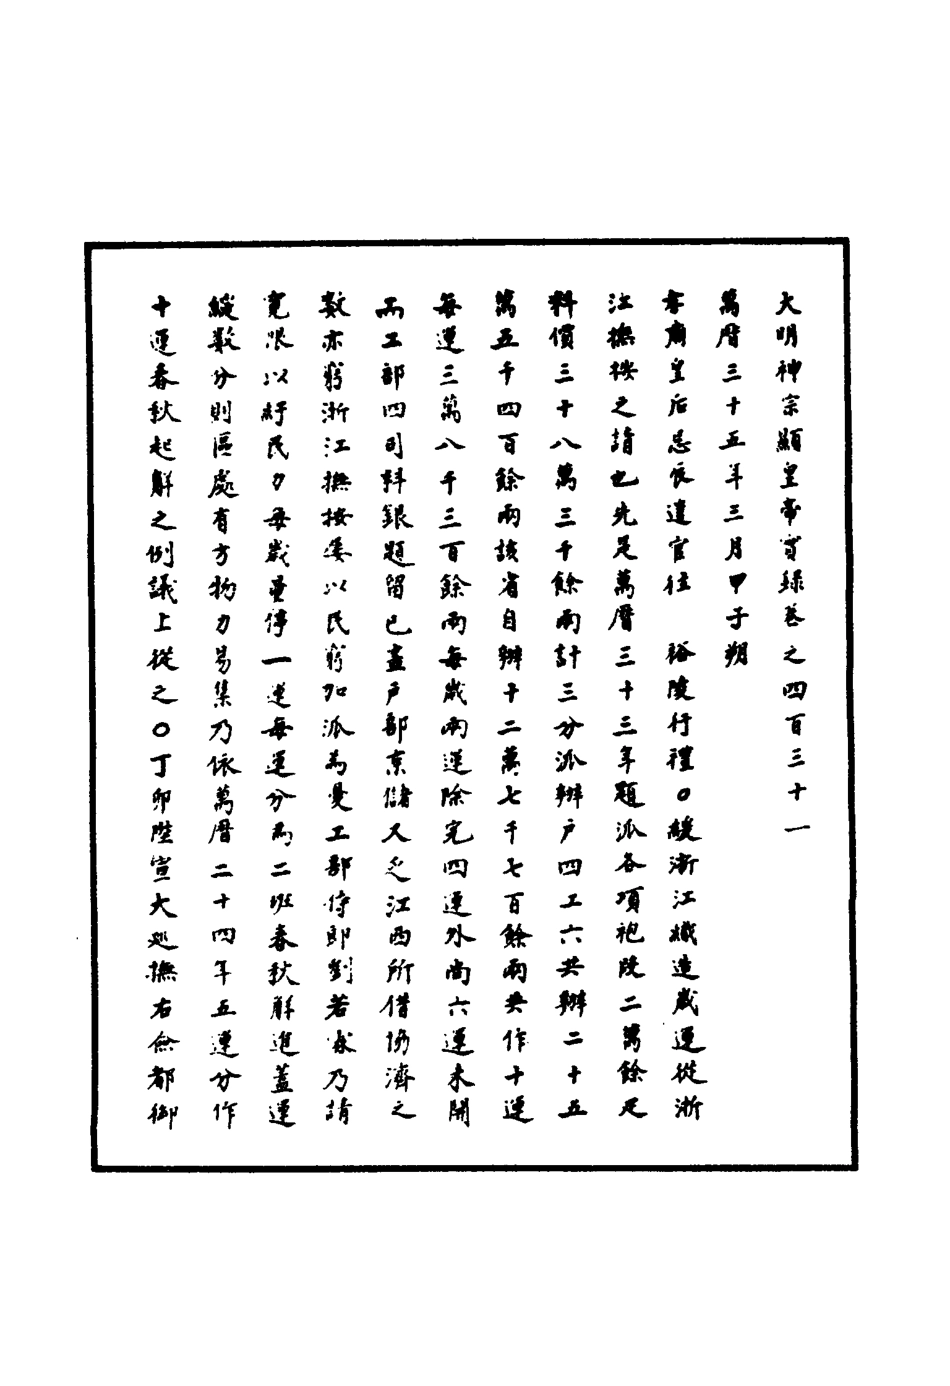 大明神宗顯皇帝實録卷之四百三十一
萬曆三十五年三月甲子朔
孝肅皇后忌辰遣官往　裕陵行禮○緩浙江織造歲運從浙
江撫按之請也先是萬曆三十三年題派各項袍段二萬餘疋
料價三十八萬三千餘兩計三分派辦户四工六共辦二十五
萬五千四百餘兩該省自辦十二萬七千七百餘兩共作十運
每運三萬八千三百餘兩每歲兩運除完四運外尚六運未開
而工部四司料銀題留已盡户部京儲又乏江西所借協濟之
数亦窮浙江撫按委以民窮加派為憂工部侍郎劉若家乃請
寬限以紓民力每歲量停一運每運分為二班春秋解進蓋運
縱数分則區處有方物力易集乃依萬曆二十四年五運分作
十運春秋起解之例議上從之○丁卯陞宣大巡撫右僉都御